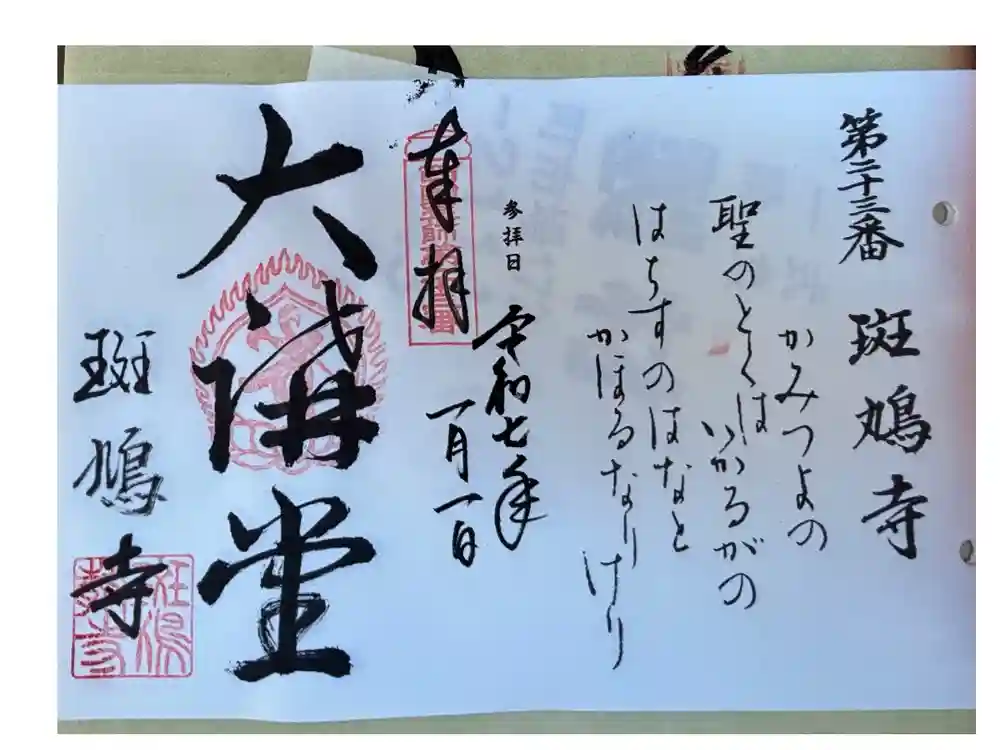 第二十三番 斑鳩寺
かみつよの
聖のとくは
いかるがの
はちすのはなと
かほるなり
けり
参拝日
令和七年
一月一日
奉拝
大講堂
斑鳩寺